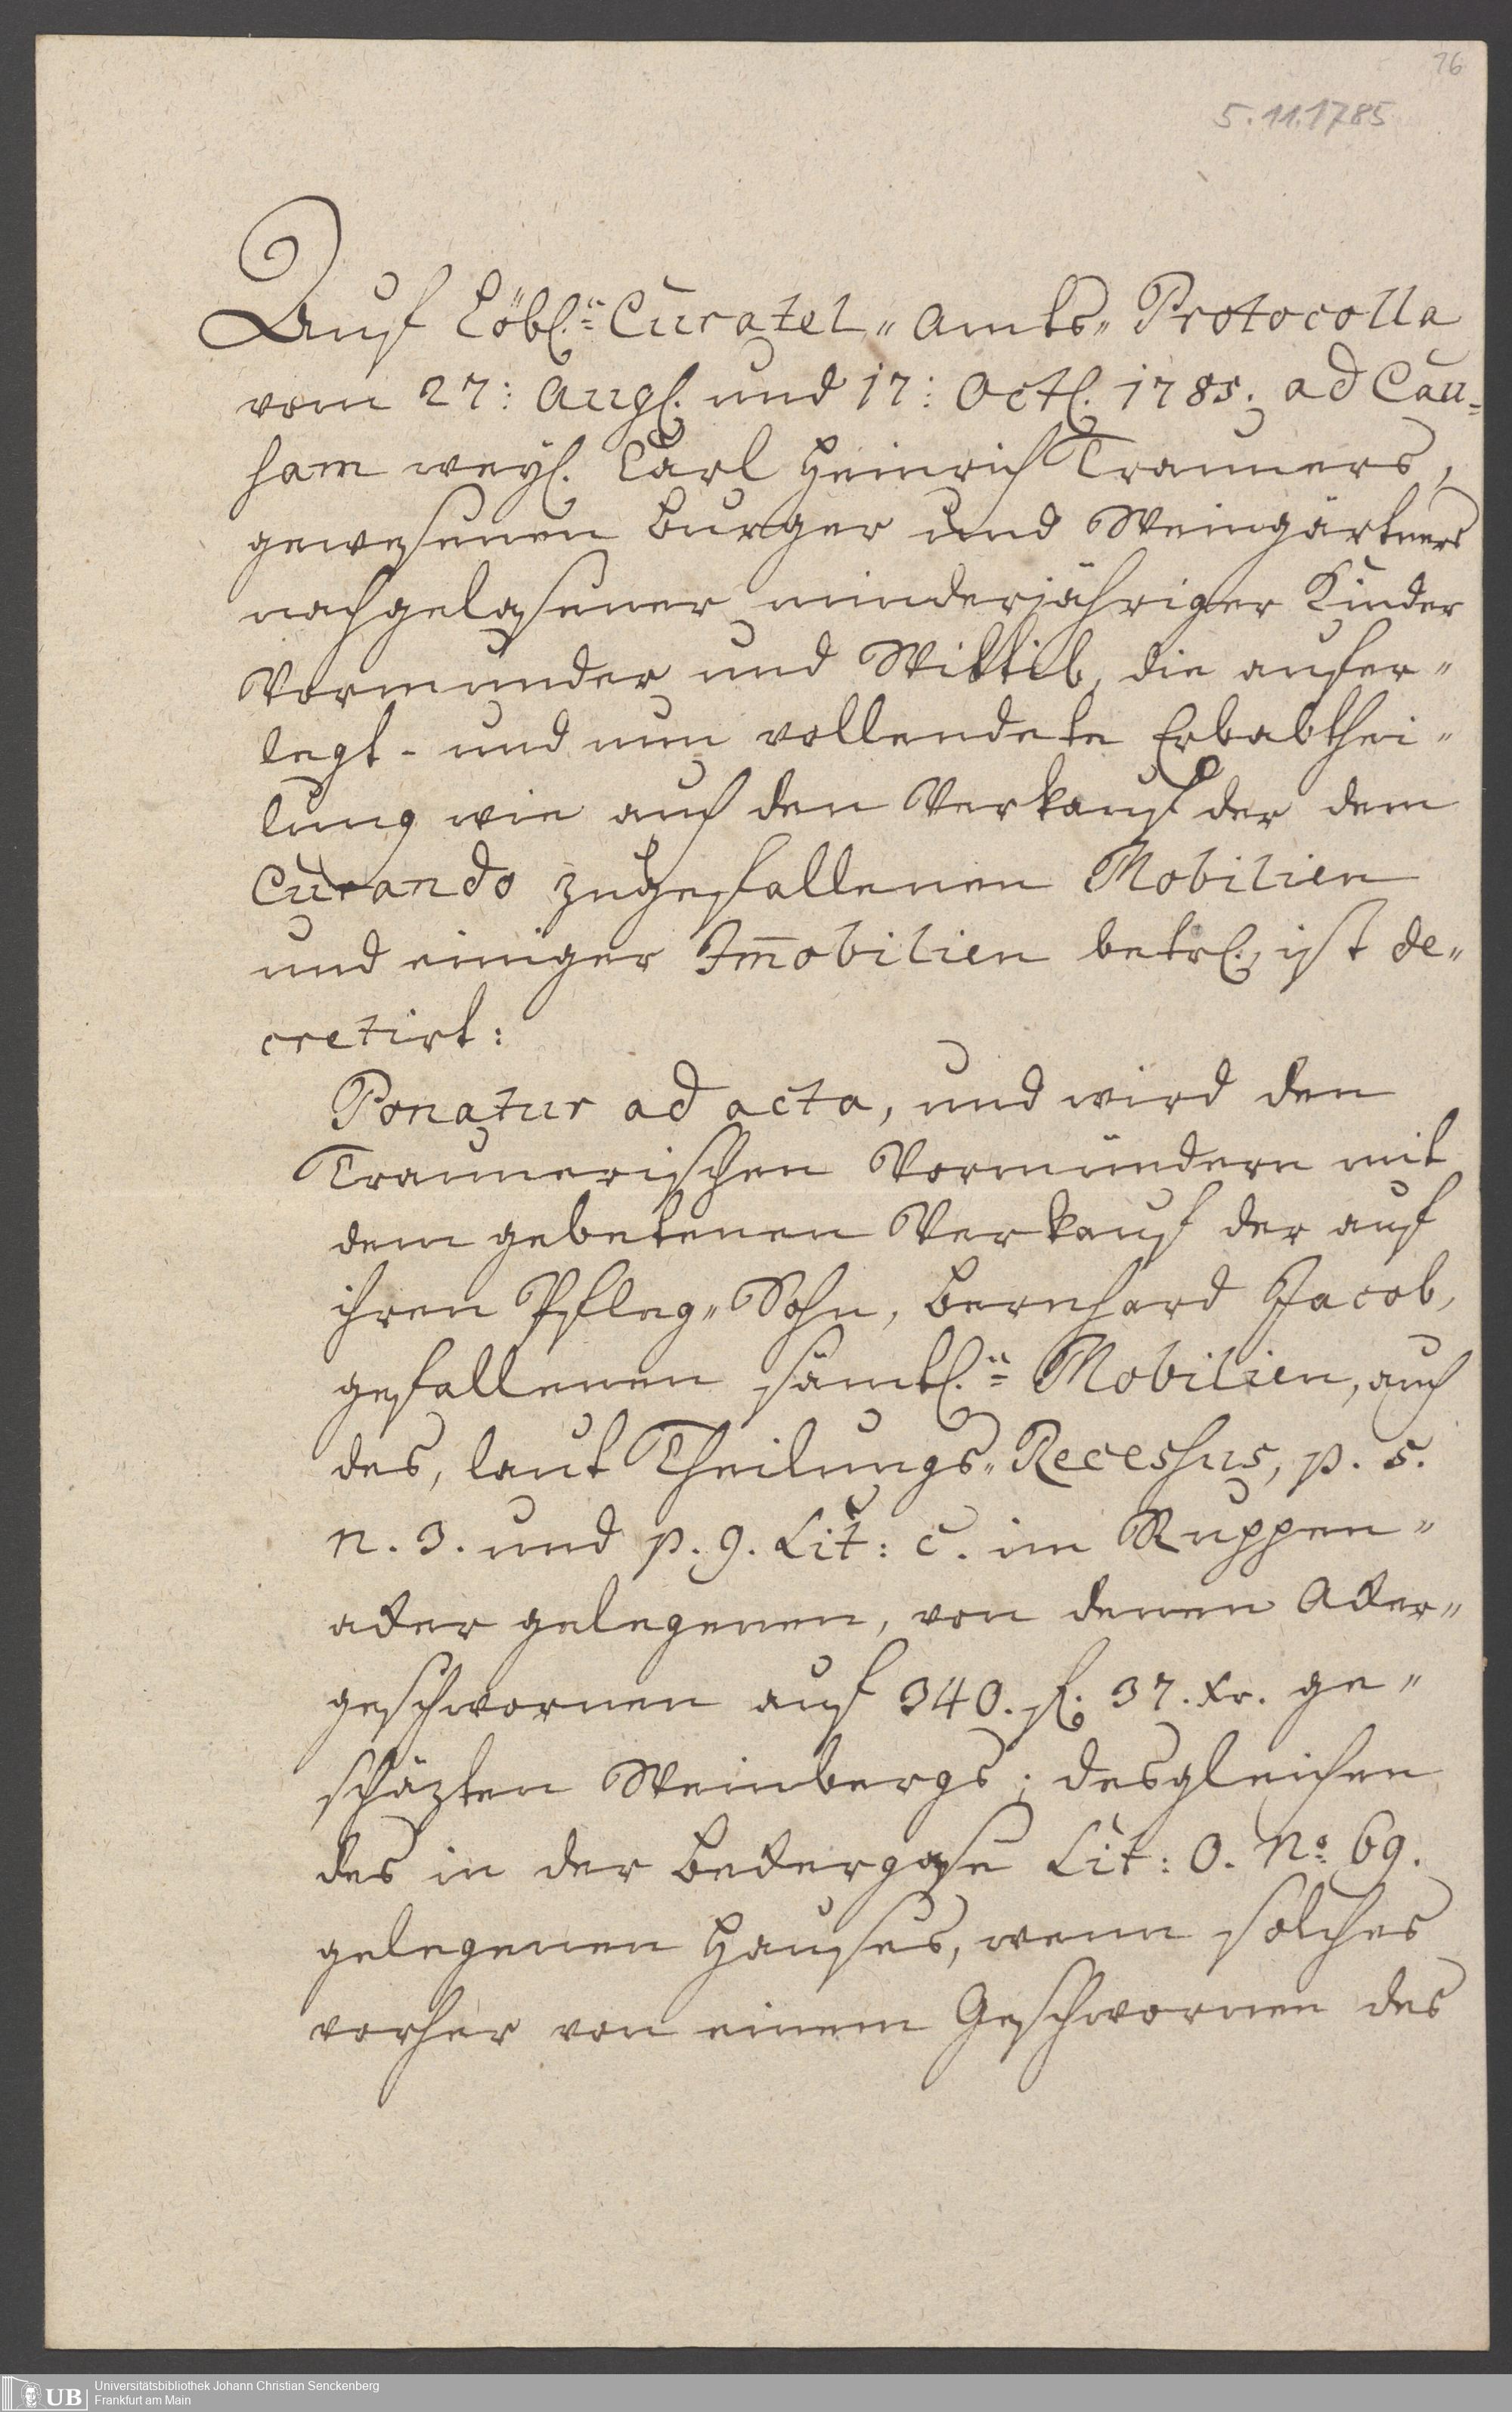 16
5.11.1785
Auf Löbl.n Curatel-Amts-Protocolla
vom 27: Augl. und 17: Octl. 1785. ad Cau-
sam weyl. Carl Heinrich Trauners,
gewesenen Burger und Weingärtners
nachgelaßener minderjähriger Kinder
Vormunder und Wittib, die aufer-
legt- und nun vollendete Erbabthei-
lung wie auch den Verkauf der dem
Curando zugefallenen Mobilien
und einiger Im̄obilien betrl. ist de-
cretirt:
Ponatur ad acta, und wird den
Traunerischen Vormündern mit
dem gebetenen Verkauf der auf
ihren Pfleg-Sohn, Bernhard Jacob,
gefallenen sämtl.n Mobilien, auch
des, laut Theilungs-Recessus, p. 5.
n. 3. und p. 9. Lit: c. im Ruppen-
acker gelegenen, von denen Acker-
geschwornen auf 340. fl. 37. xr. ge-
schäzten Weinbergs; desgleichen
des in der Beckergaße Lit: O. No. 69.
gelegenen Hauses, wenn solches
vorher von einem Geschwornen des
UB
Universitätsbibliothek Johann Christian Senckenberg
Frankfurt am Main